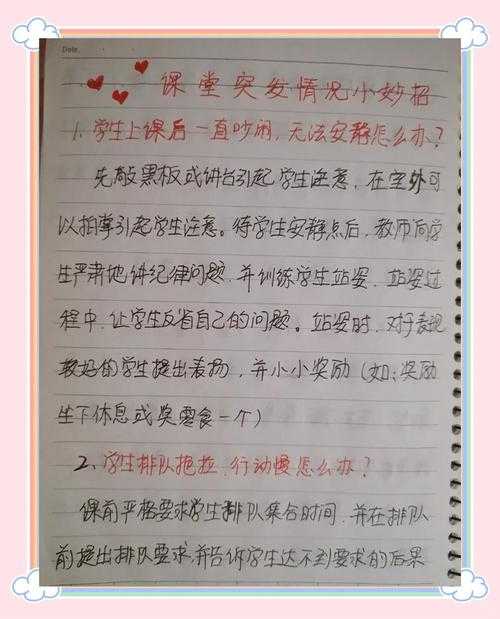 Date.
课堂突发情况小妙招
1. 学生上课后一直吵闹，无法安静怎么办？
先敲黑板或讲台引起学生注意，在室外可
以拍掌引起学生注意。待学生安静点后，教师向学
生严肃地讲纪律问题，并训练学生站姿，站姿过
程中，让学生反省自己的问题。站姿时，对于表现
较好的学生提出表扬，并小小奖励（如：奖励
坐下休息或奖零食一个）
2、学生排队拖拉，行动慢怎么办？
课前严格要求学生排队集合时间，并在排队
前提出排队要求，并告诉学生达不到要求的后果